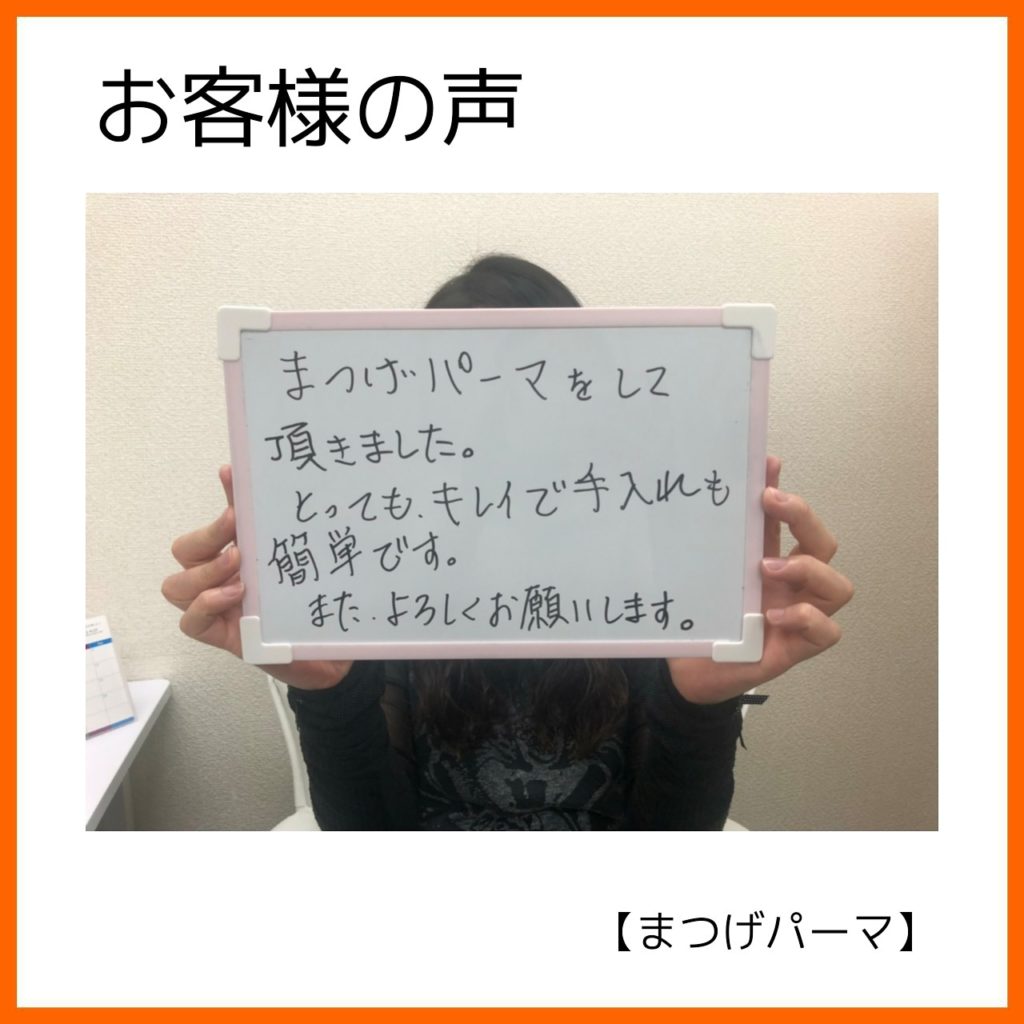 お客様の声
まつげパーマをして
頂きました。
とっても、キレイで手入れも
簡単です。
また、よろしくお願いします。
【まつげパーマ】